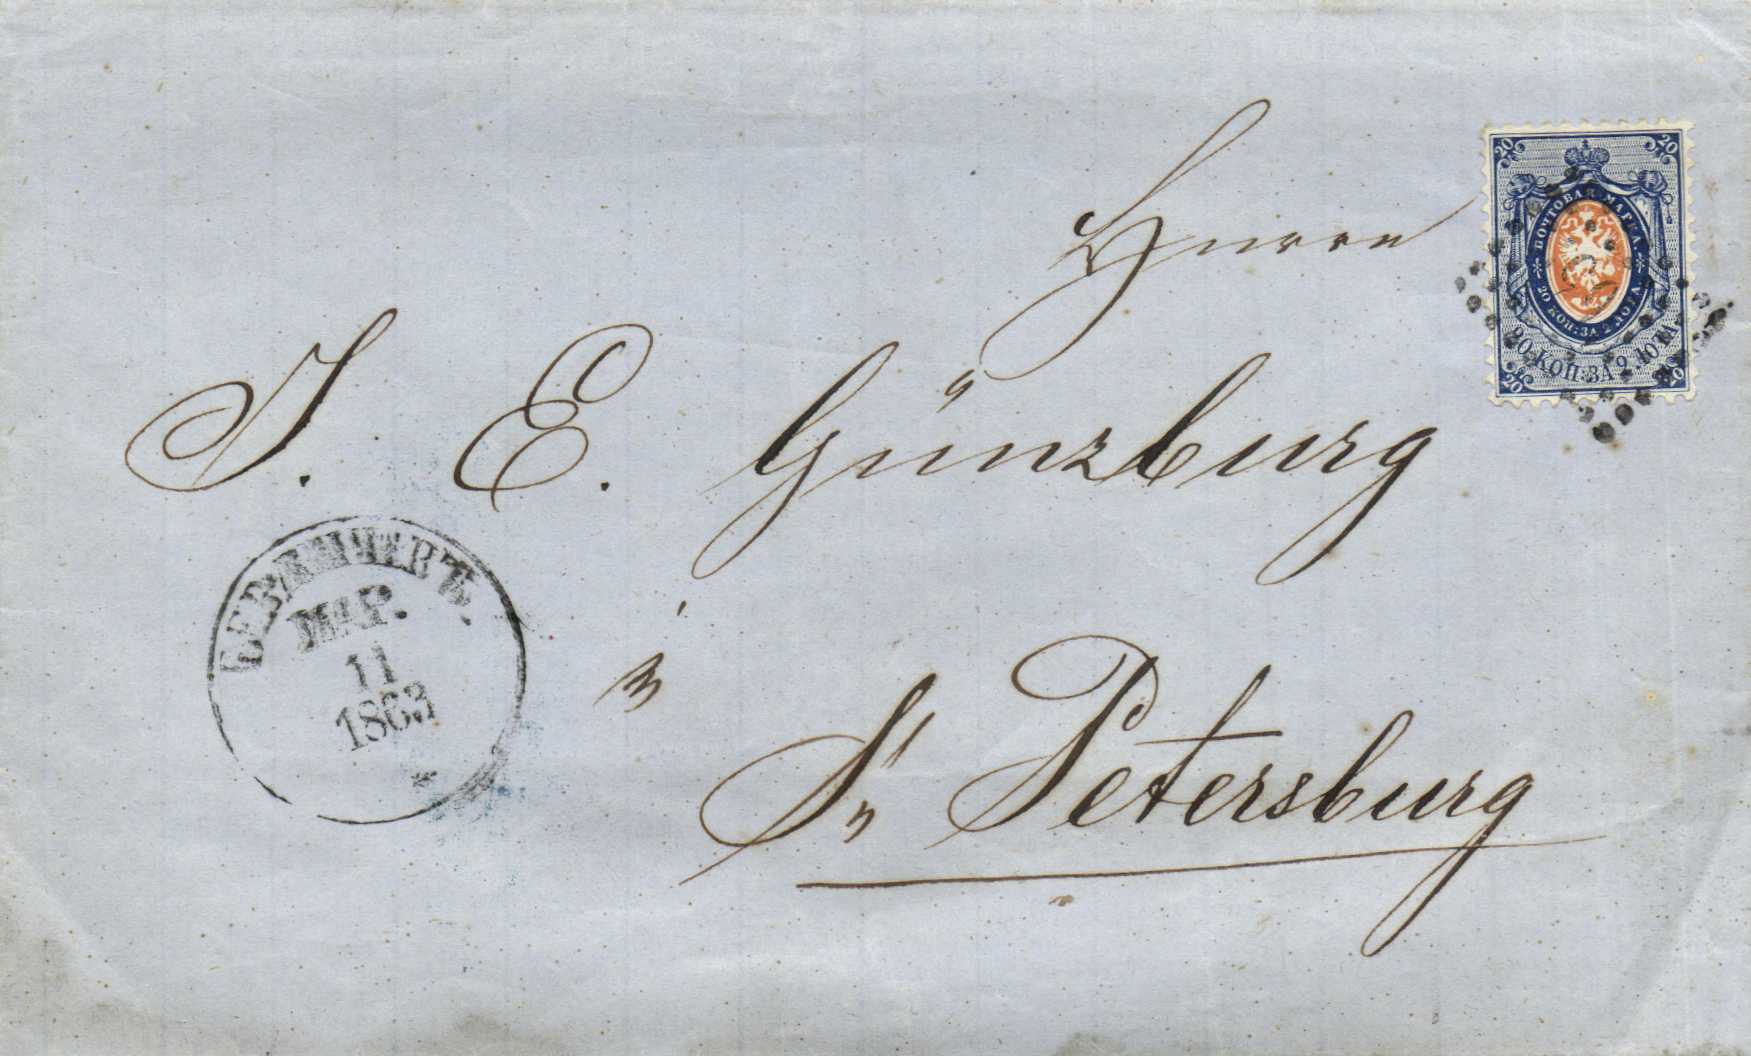 Herrn
J. E. Günzburg
in
St Petersburg
20 20
ПОЧТОВАЯ МАРКА
20 КОП: ЗА 2 ЛОТА
20.КОП:ЗА 2.ЛОТА
20 20
МАР.
11
1863